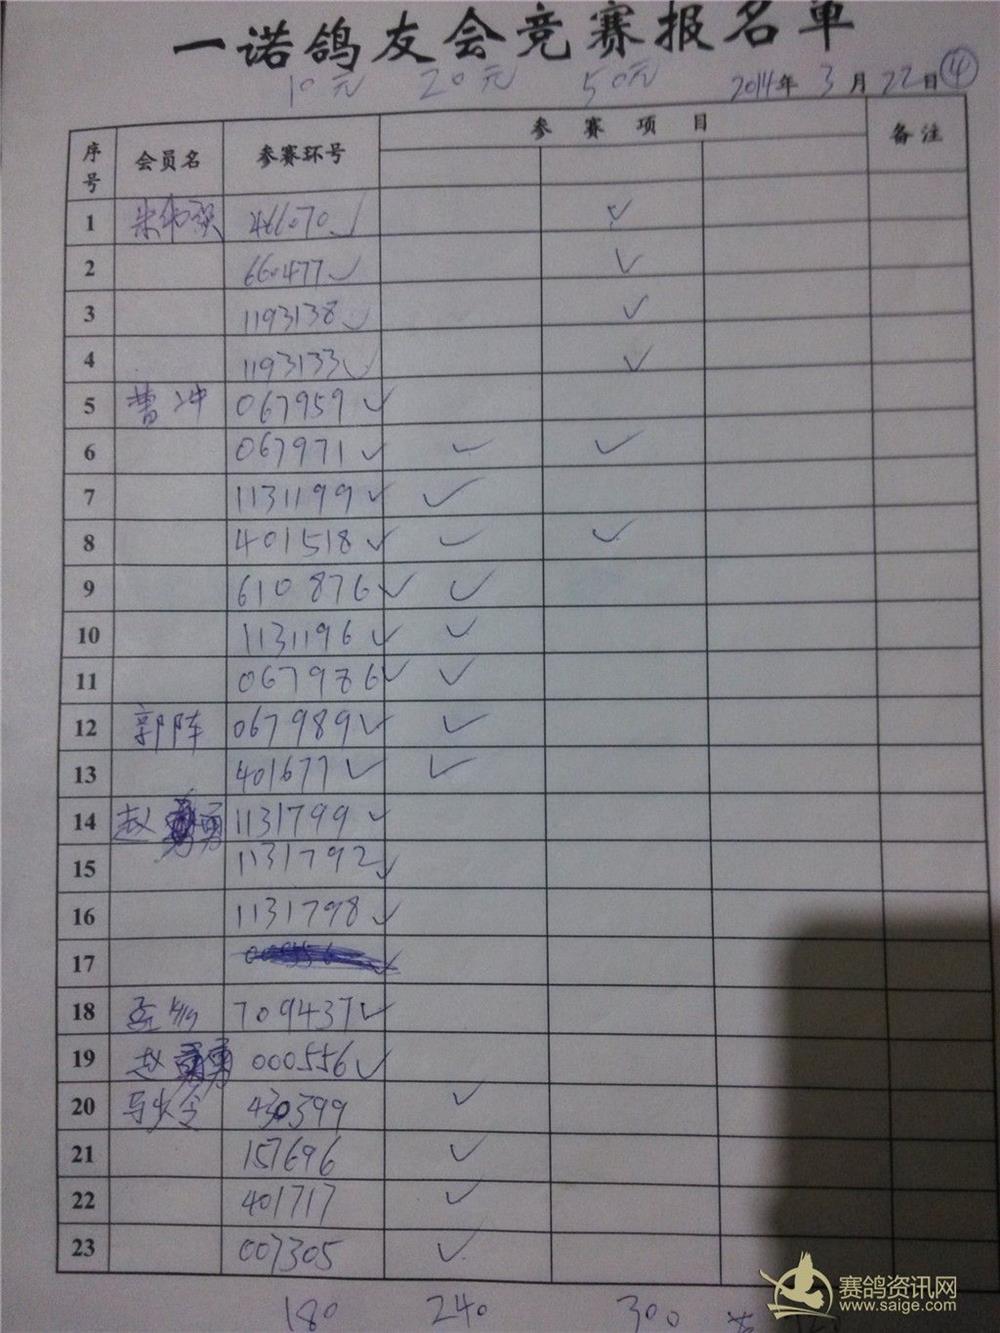 一诺鸽友会竞赛报名单
10元 20元 50元 2014年3月22日④
序号 会员名 参赛环号 参赛项目 备注
1 466070 ✓ ✓
2 660477 ✓ ✓
3 1193138 ✓ ✓
4 1193133 ✓ ✓
5 曹冲 067959 ✓
6 067971 ✓ ✓ ✓
7 1131199 ✓ ✓
8 401518 ✓ ✓ ✓
9 610876 ✓ ✓
10 1131196 ✓ ✓
11 067986 ✓ ✓
12 郭阵 067989 ✓ ✓
13 401677 ✓ ✓
14 赵勇 1131799 ✓
15 1131792 ✓
16 1131798 ✓
17
18 709437 ✓
19 赵勇 000556 ✓
20 430399 ✓
21 157696 ✓
22 401717 ✓
23 007305 ✓
180 240 300
赛鸽资讯网
www.saige.com